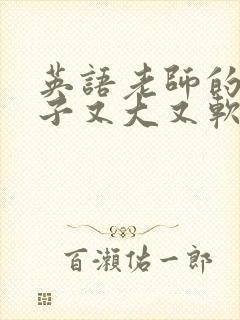 英語老師的
子又大又軟
百瀨佑一郎